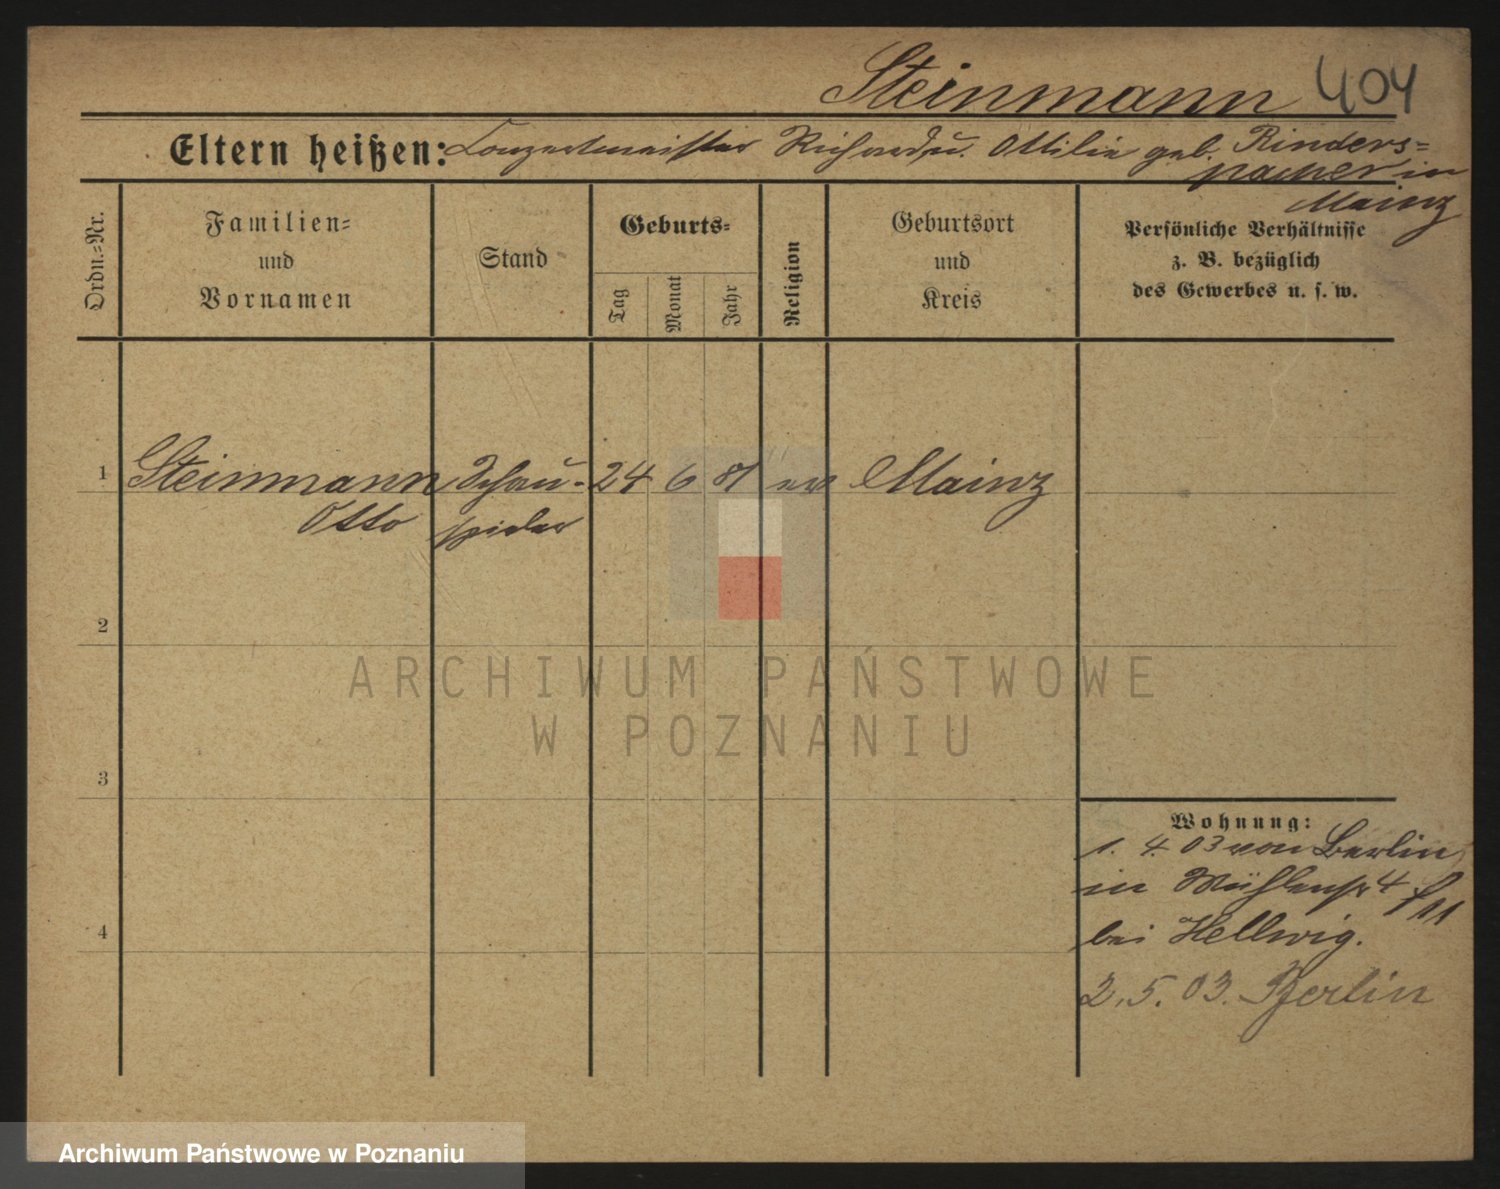 Steinmann 404
Eltern heißen: Conzertmeister Richard u. Ottilie geb. Rinders=
pacher in
Mainz
Ordn.=Nr.
Familien=
und
Vornamen
Stand
Geburts=
Tag
Monat
Jahr
Religion
Geburtsort
und
Kreis
Persönliche Verhältnisse
z. B. bezüglich
des Gewerbes u. s. w.
1 Steinmann Schau- 24 6 81 ev Mainz
Otto spieler
2
3
4
Wohnung:
1. 4. 03 von Berlin
in Mühlenstr 4
bei Hellwig.
2. 5. 03. Berlin
ARCHIWUM PAŃSTWOWE
W POZNANIU
Archiwum Państwowe w Poznaniu